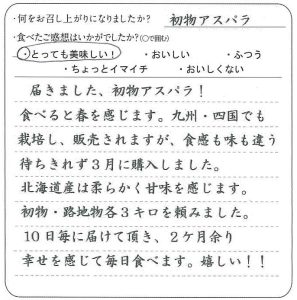 ・何をお召し上がりになりましたか? 初物アスパラ
・食べたご感想はいかがでしたか?(○で囲む)
・とっても美味しい! ・おいしい ・ふつう
・ちょっとイマイチ ・おいしくない
届きました、初物アスパラ!
食べると春を感じます。九州・四国でも
栽培し、販売されますが、食感も味も違う
待ちきれず3月に購入しました。
北海道産は柔らかく甘味を感じます。
初物・路地物各3キロを頼みました。
10日毎に届けて頂き、2ケ月余り
幸せを感じて毎日食べます。嬉しい!!